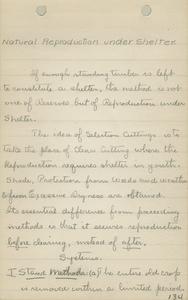 Natural Reproduction under Shelter.
If enough standing timber is left
to constitute a shelter, the method is not
one of Reserves but of Reproduction under
Shelter.
The idea of Selection Cuttings is to
take the place of Clear Cutting where the
Reproduction requires shelter in youth.
Shade, Protection from Weeds and Weather
& from Excessive Dryness are obtained.
Its essential difference from preceding
methods is that it secures reproduction
before clearing, instead of after.
Systems.
I Stand Methods: (a) The entire old crop
is removed within a limited period,
134